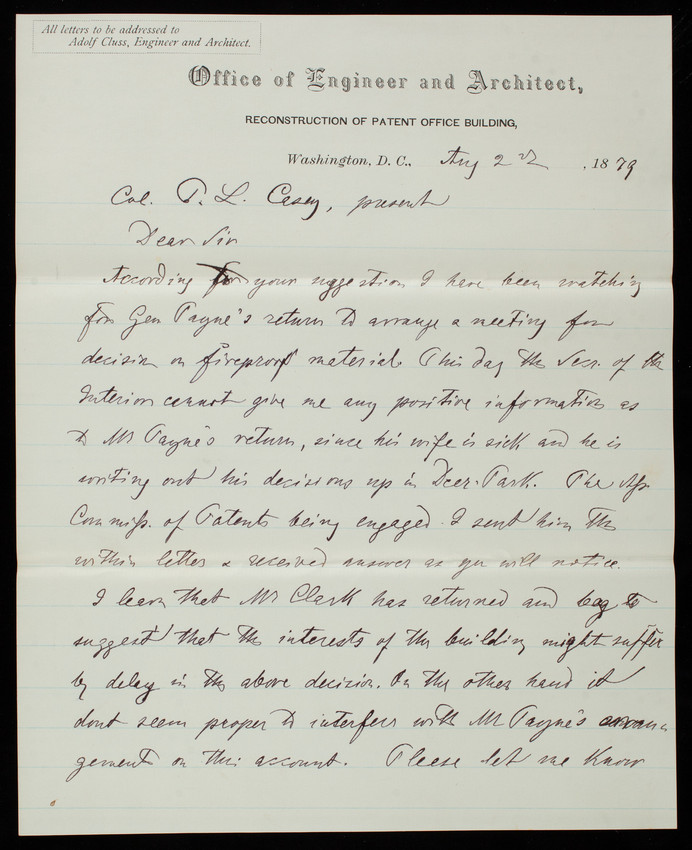 All letters to be addressed to
Adolf Cluss, Engineer and Architect.
Office of Engineer and Architect,
RECONSTRUCTION OF PATENT OFFICE BUILDING,
Washington, D. C., Aug 2nd, 1879
Col. T. L. Casey, present
Dear Sir
According for your suggestion I have been watching
for Gen Payne's return to arrange a meeting for
decision on fireproof material. This day the Secr. of the
Interior cannot give me any positive information as
to Mr Payne's return, since his wife is sick and he is
writing out his decisions up in Deer-Park. The
Commiss. of Patents being engaged I sent him the
within letter & received answer as you will notice.
I learn that Mr Clark has returned and beg to
suggest that the interests of the building might suffer
by delay in the above decision. On the other hand it
dont seem proper to interfere with Mr Payne's arran
gement on this account. Please let me know